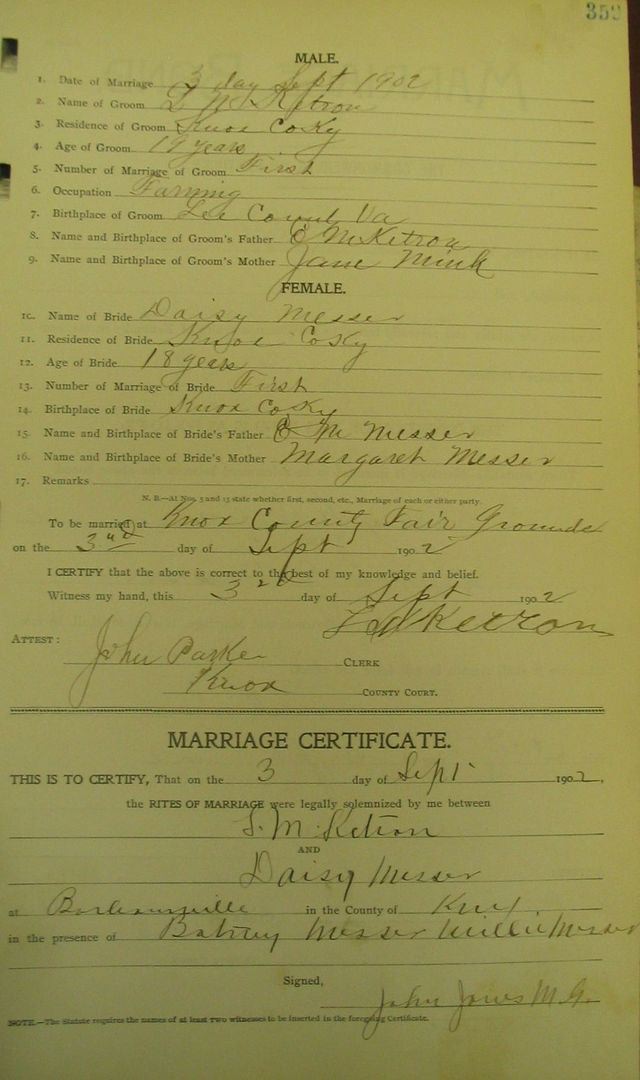 352
MALE.
1. Date of Marriage 3 day Sept 1902
2. Name of Groom N Ketron
3. Residence of Groom Knox Co Ky
4. Age of Groom 19 years
5. Number of Marriage of Groom First
6. Occupation Farming
7. Birthplace of Groom Lee Va
8. Name and Birthplace of Groom's Father M Ketron
9. Name and Birthplace of Groom's Mother Jane Mink
FEMALE.
10. Name of Bride Daisy Messer
11. Residence of Bride Knox Co Ky
12. Age of Bride 18 years
13. Number of Marriage of Bride First
14. Birthplace of Bride Knox Co Ky
15. Name and Birthplace of Bride's Father M Messer
16. Name and Birthplace of Bride's Mother Margaret Messer
17. Remarks
N. B.—At Nos. 5 and 13 state whether first, second, etc., Marriage of each or either party.
To be married at Knox County Fair Grounds
on the 3rd day of Sept 1902
I CERTIFY that the above is correct to the best of my knowledge and belief.
Witness my hand, this 3 day of Sept 1902
Ketron
ATTEST:
John Parker CLERK
Knox COUNTY COURT.
MARRIAGE CERTIFICATE.
THIS IS TO CERTIFY, That on the 3 day of Sept 1902,
the RITES OF MARRIAGE were legally solemnized by me between
M Ketron
AND
Daisy Messer
at in the County of Knox
in the presence of Messer Millie Messer
Signed,
John Jones M. G.
NOTE.—The Statute requires the names of at least two witnesses to be inserted in the foregoing Certificate.